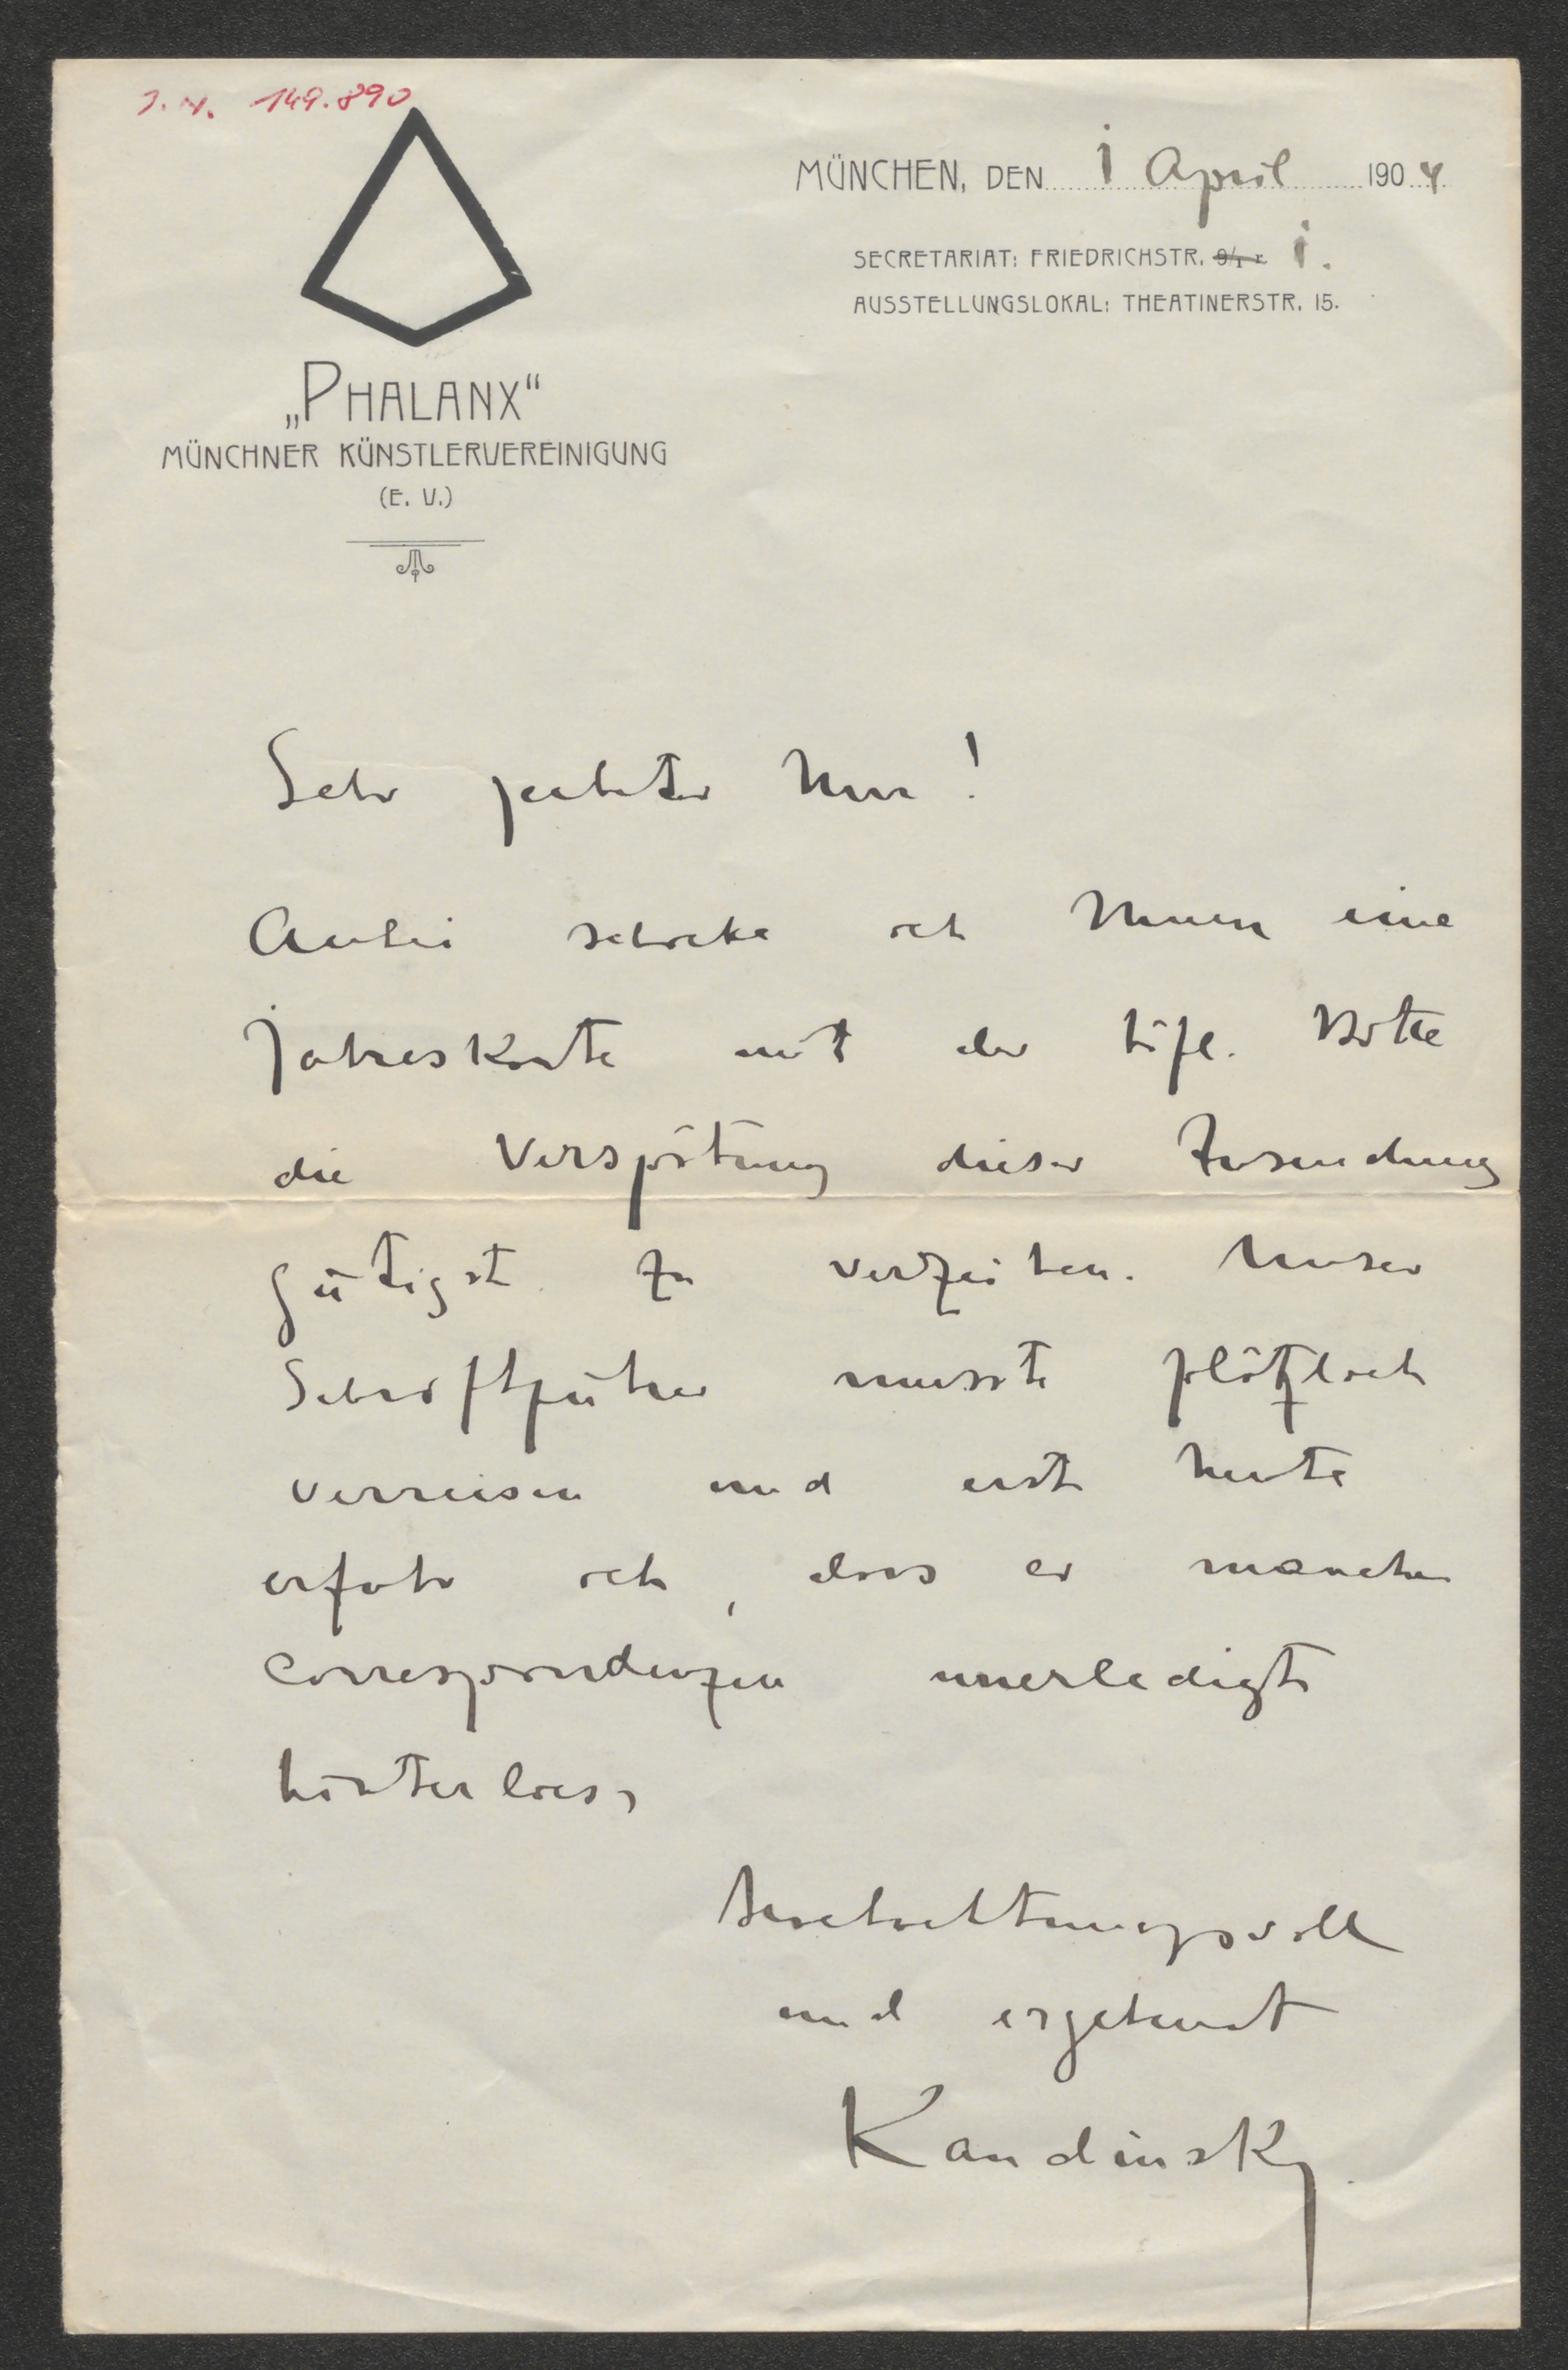 J. N. 149.890
MÜNCHEN, DEN 1 April 1904
SECRETARIAT: FRIEDRICHSTR. 9/I r 1.
AUSSTELLUNGSLOKAL: THEATINERSTR. 15.
„PHALANX“
MÜNCHNER KÜNSTLERVEREINIGUNG
(E. V.)
Sehr geehrter Herr!
Anbei schicke ich Ihnen eine
Jahreskarte mit der höfl. Bitte
die Verspätung dieser Zusendung
gütigst zu verzeihen. Unser
Schriftführer musste plötzlich
verreisen und erst heute
erfahr ich, dass er manche
Correspondenzen unerledigt
hinterliess,
Hochachtungsvoll
und ergebenst
Kandinsky